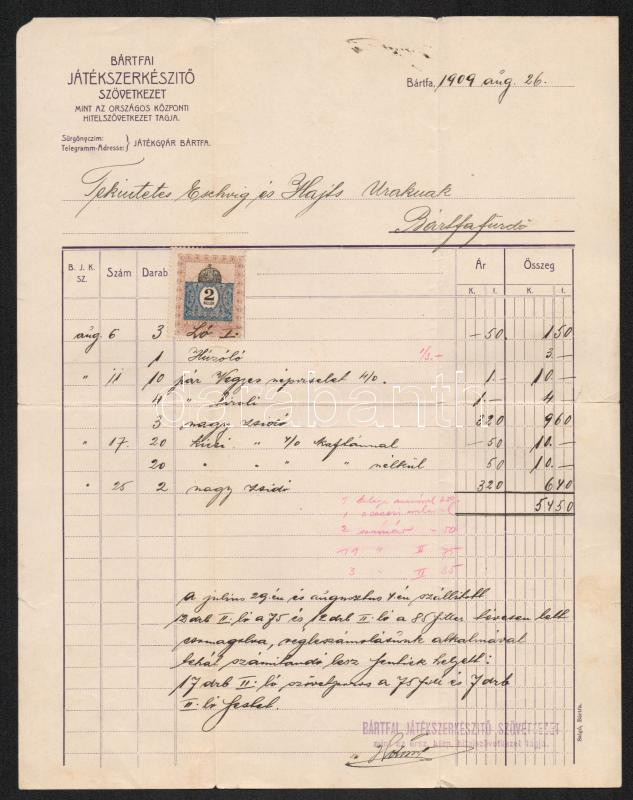 BÁRTFAI
JÁTÉKSZERKÉSZITŐ
SZÖVETKEZET
MINT AZ ORSZÁGOS KÖZPONTI
HITELSZÖVETKEZET TAGJA.
Sürgönyczim:
Telegramm-Adresse: } JÁTÉKGYÁR BÁRTFA.
Bártfa, 1909 aug. 26.
Tekintetes Eschwig és Hajts Uraknak
Bártfafürdő
B. J. K. SZ. Szám Darab Ár Összeg
K. f. K. f.
2
aug 6 3 Ló I. -50 150
1 Húzóló 1/3.- 3.-
" 11 10 pár Vegyes népviselet 4/0. 1.- 10.-
4 " tiroli 1.- 4.-
3 nagy zsidó 320 960
" 17. 20 kicsi " 4/0 kaftánnal -50 10.-
20 " " " nélkül 50 10.-
" 25 2 nagy zsidó 320 640
5450
1
1
2 szamár -50
11 " II 75
3 - II 85
A julius 29-én és augusztus 4-én szállitott
12 drb II. ló a 75 és 12 drb II. ló a 85 fillér tévesen lett
csomagolva, végleszámolásunk alkalmával
tehát számitandó lesz fentiek helyett:
17 drb II. ló szövetporos a 75 fill és 7 drb
II. ló festet.
BÁRTFAI JÁTÉKSZERKÉSZITŐ SZÖVETKEZET
mint az orsz. közp. hitelszövetkezet tagja.
Salgó, Bártfa.
databanth